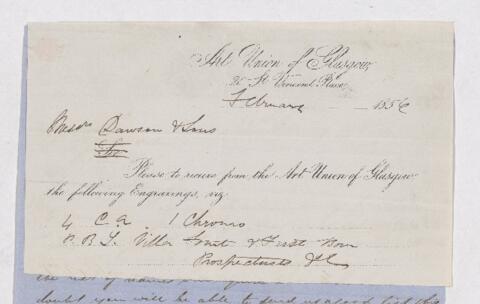 Art Union of Glasgow,
26 St. Vincent Place,
February 1856
Messrs Dawson & Sons
Sir
Please to receive from the Art Union of Glasgow
the following Engravings, viz
4 C.a. 1 Chromo
Villa & First Born
Prospectuses &c
doubt you will be able to send a good list this